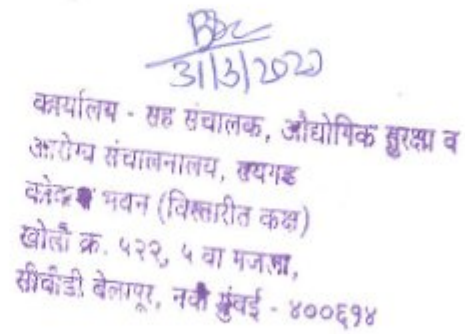 31/3/2020
कार्यालय - सह संचालक, औद्योगिक सुरक्षा व
आरोग्य संचालनालय, रायगड
कोकण भवन (विस्तारीत कक्ष)
खोली क्र. ५२२, ५ वा मजला,
सीबीडी बेलापूर, नवी मुंबई - ४००६१४